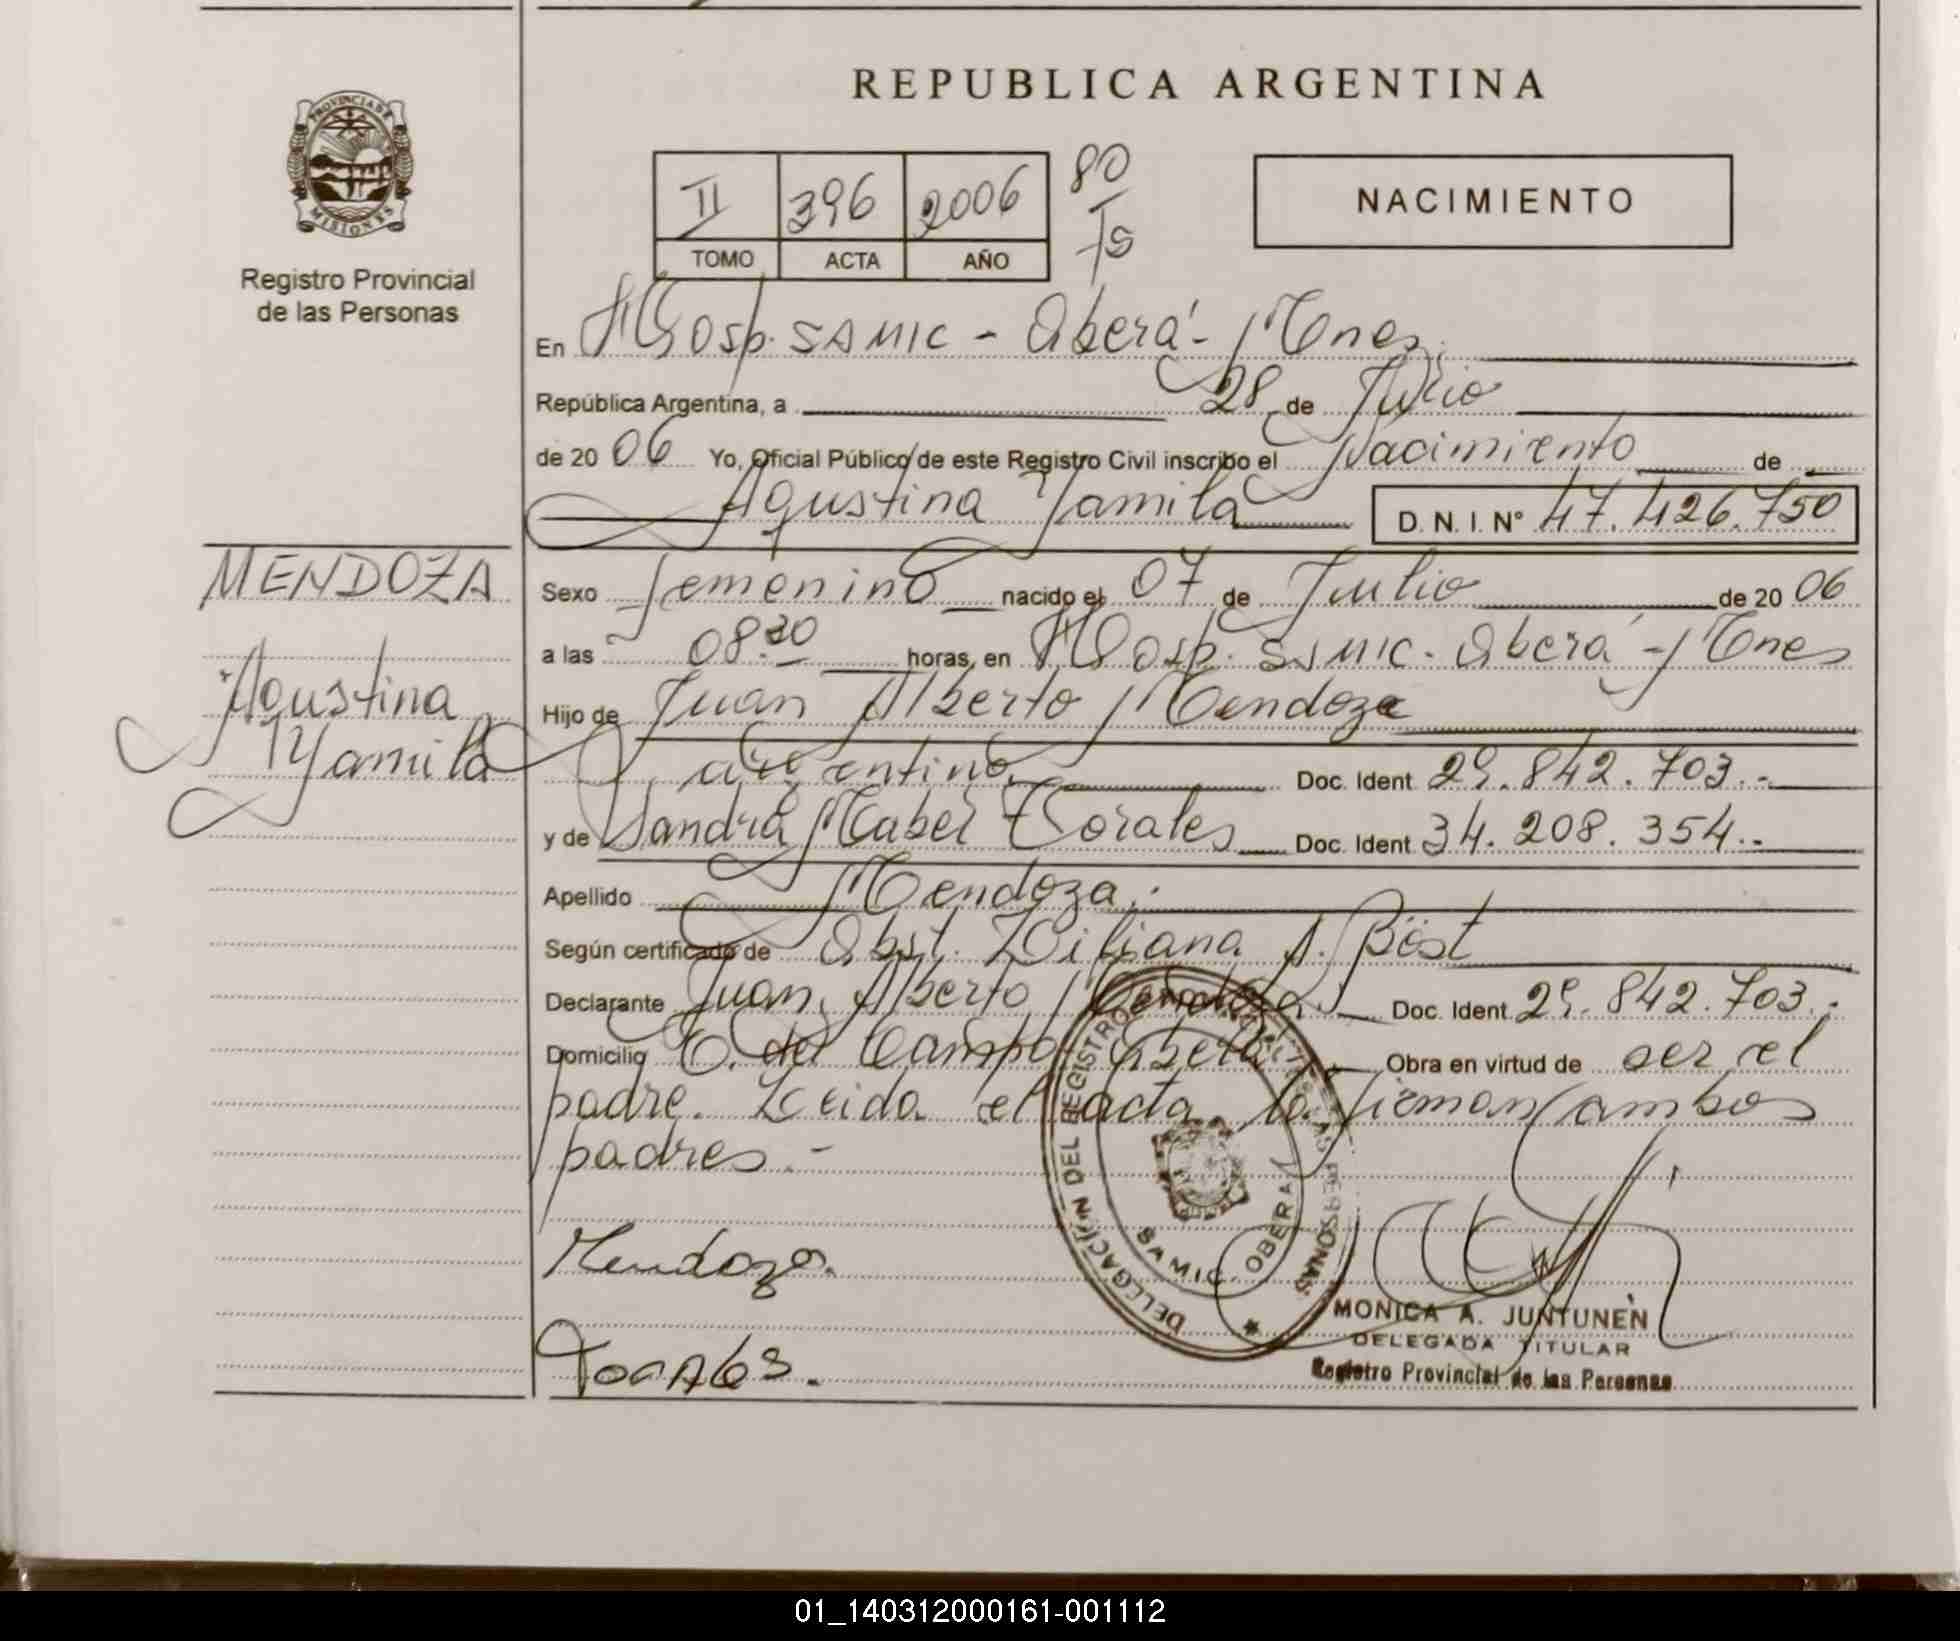 REPUBLICA ARGENTINA
PROVINCIA DE
MISIONES
Registro Provincial
de las Personas
II 396 2006 80
TOMO ACTA AÑO
NACIMIENTO
En Hosp. SAMIC - Oberá - Mnes.
República Argentina, a 28 de Julio
de 20 06 Yo, Oficial Público de este Registro Civil inscribo el Nacimiento de
Agustina Yamila D. N. I. Nº 47.426.750
MENDOZA
Agustina
Yamila
Sexo femenino nacido el 07 de Julio de 20 06
a las 08.30 horas, en Hosp. SAMIC. Oberá - Mnes
Hijo de Juan Alberto Mendoza
argentino Doc. Ident 29.842.703.-
y de Sandra Mabel Torales Doc. Ident 34.208.354.-
Apellido Mendoza.
Según certificado de Obst. Liliana A. Böst
Declarante Juan Alberto Mendoza Doc. Ident 29.842.703.-
Domicilio C. del Campo Oberá Obra en virtud de ser el
padre. Leida el acta la firman ambos
padres.-
Mendoza.
Torales.
DELEGACIÓN DEL REGISTRO PROVINCIAL DE LAS PERSONAS
SAMIC. OBERA
MONICA A. JUNTUNEN
DELEGADA TITULAR
Registro Provincial de las Personas
01_140312000161-001112